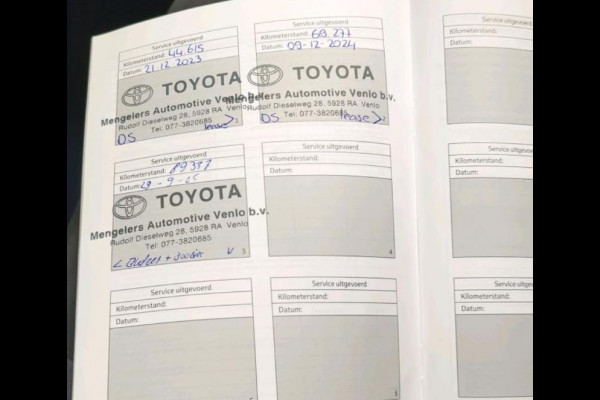 Service uitgevoerd
Kilometerstand: 44.615
Datum: 21.12.2023
TOYOTA
Mengelers Automotive Venlo b.v.
Rudolf Dieselweg 28, 5928 RA Venlo
Tel: 077-3820685
DS lease
Service uitgevoerd
Kilometerstand: 68.277
Datum: 09-12-2024
TOYOTA
Mengelers Automotive Venlo b.v.
Rudolf Dieselweg 28, 5928 RA Venlo
Tel: 077-3820685
DS lease
2
Service uitgevoerd
Kilometerstand:
Datum:
Service uitgevoerd
Kilometerstand: 89397
Datum: -9-25
TOYOTA
Mengelers Automotive Venlo b.v.
Rudolf Dieselweg 28, 5928 RA Venlo
Tel: 077-3820685
3
Service uitgevoerd
Kilometerstand:
Datum:
4
Service uitgevoerd
Kilometerstand:
Datum:
Service uitgevoerd
Kilometerstand:
Datum:
Service uitgevoerd
Kilometerstand:
Datum:
Service uitgevoerd
Kilometerstand:
Datum: